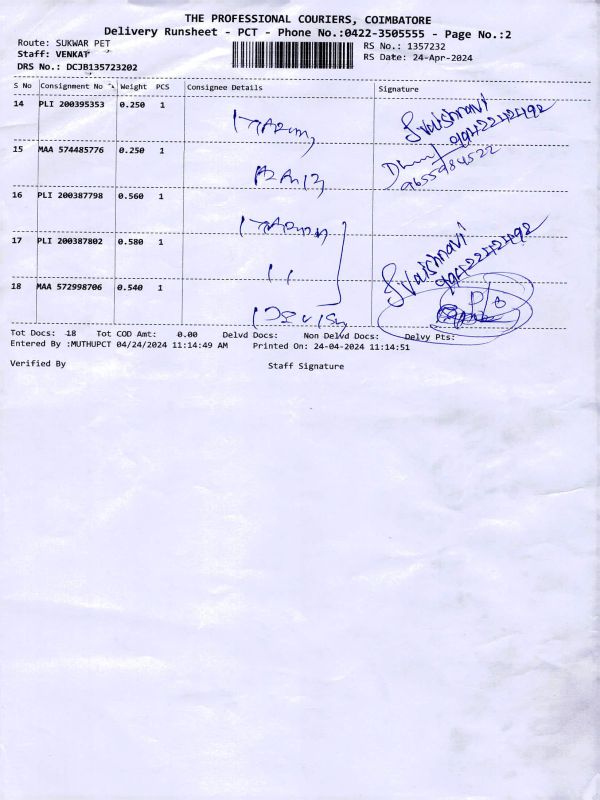 THE PROFESSIONAL COURIERS, COIMBATORE
Delivery Runsheet - PCT - Phone No.:0422-3505555 - Page No.:2
Route: SUKWAR PET
RS No.: 1357232
Staff: VENKAT
RS Date: 24-Apr-2024
DRS No.: DCJB135723202
S No Consignment No Weight PCS Consignee Details Signature
14 PLI 200395353 0.250 1
15 MAA 574485776 0.250 1
9655984522
16 PLI 200387798 0.560 1
17 PLI 200387802 0.580 1
Vaishnavi
18 MAA 572998706 0.540 1
Tot Docs: 18 Tot COD Amt: 0.00 Delvd Docs: Non Delvd Docs: Delvy Pts:
Entered By :MUTHUPCT 04/24/2024 11:14:49 AM Printed On: 24-04-2024 11:14:51
Verified By Staff Signature